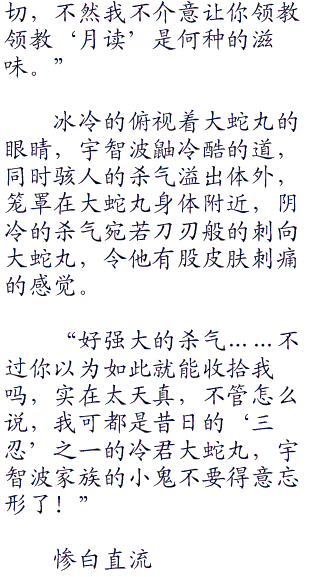 切，不然我不介意让你领教
领教‘月读’是何种的滋
味。”
冰冷的俯视着大蛇丸的
眼睛，宇智波鼬冷酷的道，
同时骇人的杀气溢出体外，
笼罩在大蛇丸身体附近，阴
冷的杀气宛若刀刃般的刺向
大蛇丸，令他有股皮肤刺痛
的感觉。
“好强大的杀气……不
过你以为如此就能收拾我
吗，实在太天真，不管怎么
说，我可都是昔日的‘三
忍’之一的冷君大蛇丸，宇
智波家族的小鬼不要得意忘
形了！”
惨白直流